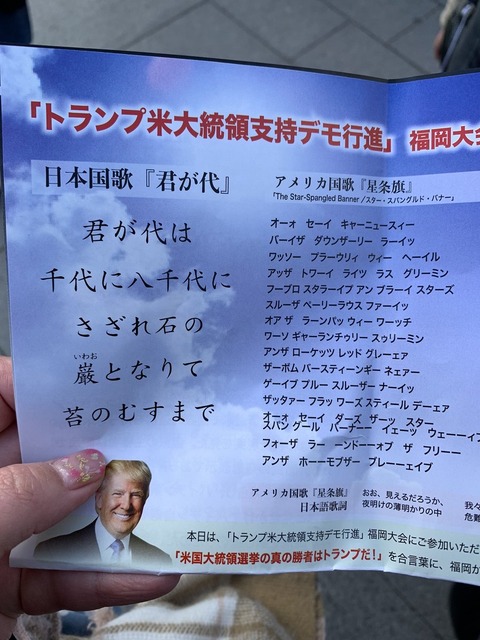 「トランプ米大統領支持デモ行進」 福岡大会
日本国歌『君が代』
君が代は
千代に八千代に
さざれ石の
いわお
巌となりて
苔のむすまで
アメリカ国歌『星条旗』
「The Star-Spangled Banner /スター・スパングルド・バナー」
オーォ セーイ キャーニュースィー
バーイザ ダウンザーリー ラーイッ
ワッソー プラーウリィ ウィー ヘーイル
アッザ トワーイ ライツ ラス グリーミン
フーブロ スタラーイプ アン ブラーイ スターズ
スルーザ ペーリーラウス ファーイッ
オア ザ ラーンパッ ウィー ワーッチ
ワーソ ギャーランチゥリー スゥリーミン
アンザ ローケッツ レッド グレーェア
ザーボム バースティーンギー ネェアー
ゲーイブ プルー スルーザー ナーイッ
ザッタァー フラッ ワーズ スティール デーェア
オーォ セーイ ダーズ ザーッ スター
スパングール バーナー イェーッ ウェーーイブ
フォーザ ラー ーンドーーオブ ザ フリーー
アンザ ホーーモブザー ブレーーェイブ
アメリカ国歌『星条旗』
日本語歌詞
おお、見えるだろうか、
夜明けの薄明かりの中
我々
危難
本日は、「トランプ米大統領支持デモ行進」福岡大会にご参加いただ
「米国大統領選挙の真の勝者はトランプだ!」を合言葉に、福岡か